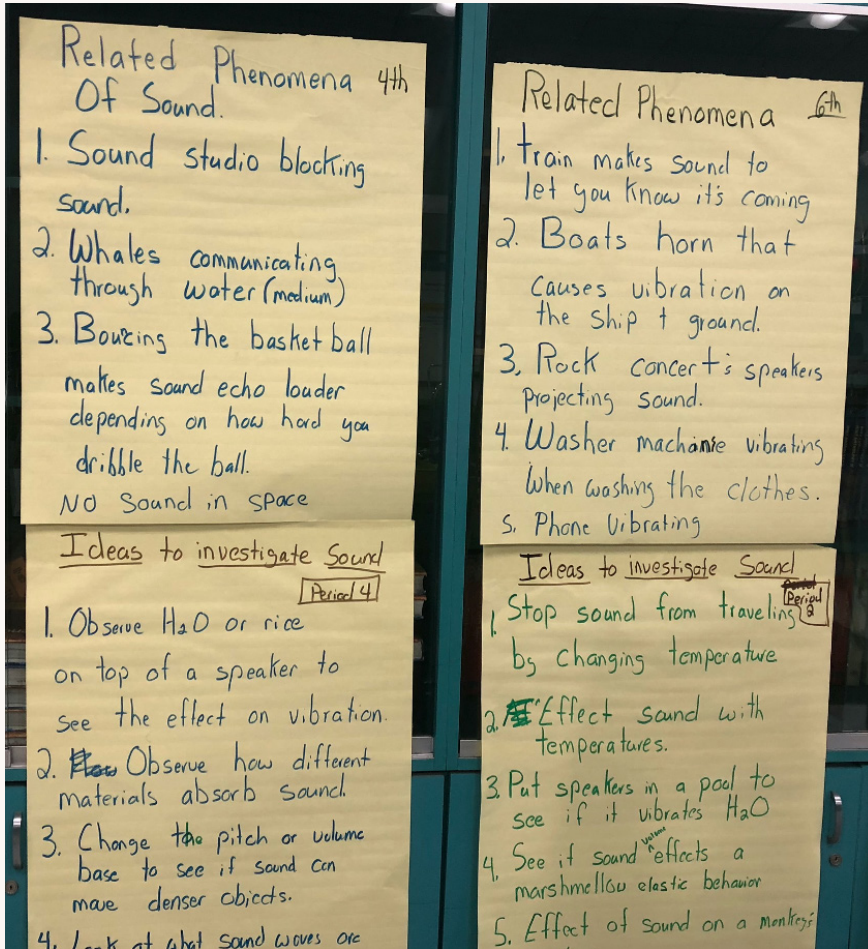 Related Phenomena 4th
Of Sound.
1. Sound studio blocking
sound.
2. Whales communicating
through water (medium)
3. Boucing the basket ball
makes sound echo louder
depending on how hard you
dribble the ball.
NO Sound in space
Ideas to investigate Sound
Period 4
1. Observe H2O or rice
on top of a speaker to
see the effect on vibration.
2. Observe how different
materials absorb sound.
3. Change the pitch or volume
base to see if sound can
move denser objects.
4. Look at what sound waves are
Related Phenomena 6th
1. train makes sound to
let you know it's coming
2. Boats horn that
causes vibration on
the ship + ground.
3. Rock concert's speakers
projecting sound.
4. Washer machanie vibrating
when washing the clothes.
5. Phone vibrating
Ideas to investigate Sound
Period
2
1. Stop sound from traveling
by changing temperature
2. Effect sound with
temperatures.
3. Put speakers in a pool to
see if it vibrates H2O
4. See if sound volume effects a
marshmellow elastic behavior
5. Effect of sound on a monkey's